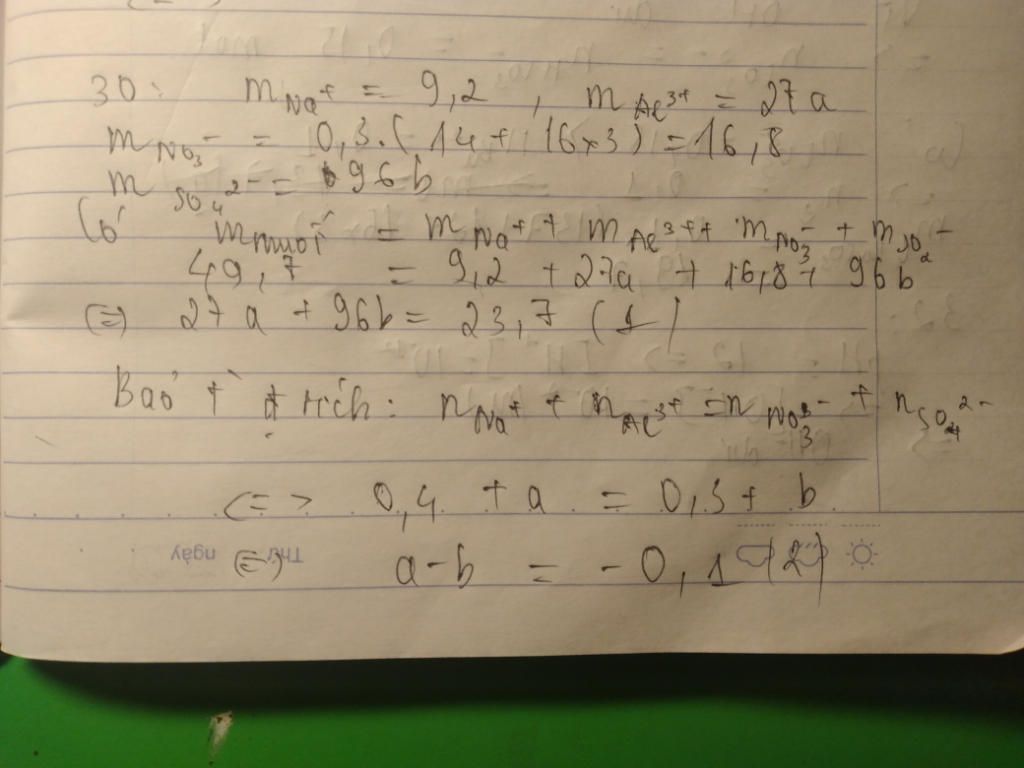 30: m Na⁺ = 9,2 , m Al³⁺ = 27a
m NO₃⁻ = 0,3.(14 + 16×3) = 16,8
m SO₄²⁻ = 96b
Có m muối = m Na⁺ + m Al³⁺ + m NO₃⁻ + m SO₄⁻
49,7 = 9,2 + 27a + 16,8 + 96b
(=) 27a + 96b = 23,7 (1)
Bảo t đ tích: n Na⁺ + n Al³⁺ = n NO₃⁻ + n SO₄²⁻
<=> 0,4 + a = 0,3 + b
(=) a - b = -0,1 (2)
Thứ ngày